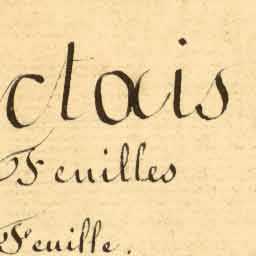 ctais
Feuilles
Feuille.